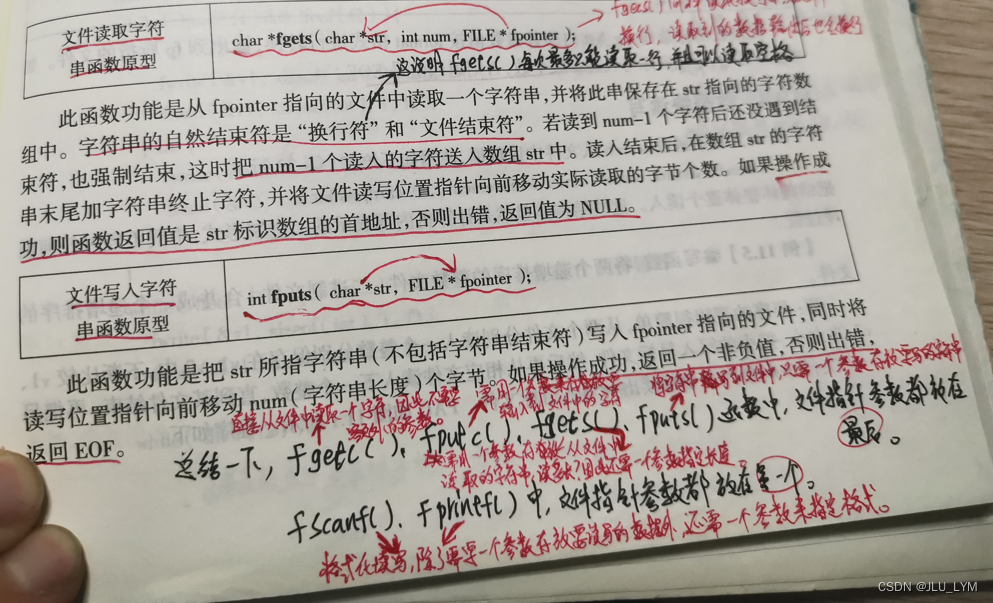 文件读取字符
串函数原型
char *fgets( char *str, int num, FILE * fpointer );
换行，读取到的数据
这说明 fgets()每次最多只能读取一行，并且可以读取空格
此函数功能是从 fpointer 指向的文件中读取一个字符串，并将此串保存在 str 指向的字符数
组中。字符串的自然结束符是“换行符”和“文件结束符”。若读到 num-1 个字符后还没遇到结
束符，也强制结束，这时把 num-1 个读入的字符送入数组 str 中。读入结束后，在数组 str 的字符
串末尾加字符串终止字符，并将文件读写位置指针向前移动实际读取的字节个数。如果操作成
功，则函数返回值是 str 标识数组的首地址，否则出错，返回值为 NULL。
文件写入字符
串函数原型
int fputs( char *str, FILE * fpointer );
此函数功能是把 str 所指字符串(不包括字符串结束符)写入 fpointer 指向的文件，同时将
读写位置指针向前移动 num(字符串长度)个字节。如果操作成功，返回一个非负值，否则出错，
返回 EOF。
直接从文件中读取一个字符，因此不需要
额外的参数。
需用一个参数来存放要
输入到文件中的字符
将字符串输写到文件中，只需一个参数存放要写的字符串
总结一下，fgetc()、fputc()、fgets()、fputs()函数中，文件指针参数都放在
最后。
需用一个参数存放从文件中
读取的字符串，读多长？因此还需一个参数指定长度
fscanf()、fprintf()中，文件指针参数都放在第一个。
格式化读写，除了需要一个参数存放要读写的数据外，还需一个参数来指定格式。
CSDN @JLU_LYM